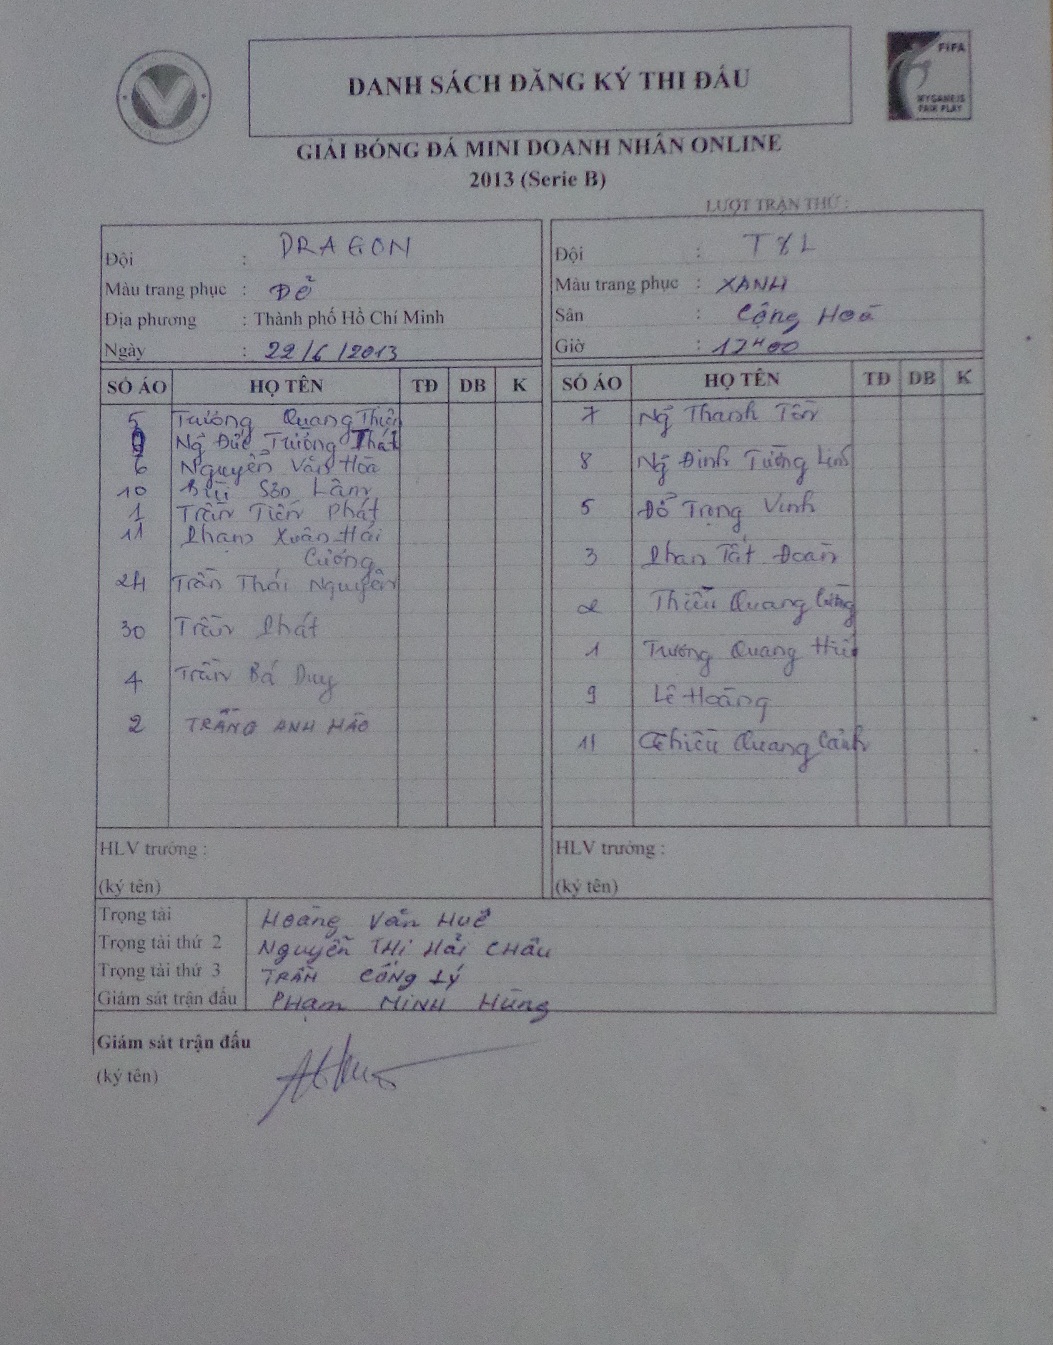 DANH SÁCH ĐĂNG KÝ THI ĐẤU
FIFA
MY GAME IS
FAIR PLAY
GIẢI BÓNG ĐÁ MINI DOANH NHÂN ONLINE
2013 (Serie B)
LƯỢT TRẬN THỨ :
Đội : DRAGON
Màu trang phục : ĐỎ
Địa phương : Thành phố Hồ Chí Minh
Ngày : 22/6/2013
Đội : T&L
Màu trang phục : XANH
Sân : Cộng Hoà
Giờ : 17H00
SỐ ÁO HỌ TÊN TĐ DB K
5 Trương Quang Thiện
Ng Đức Trường Thát
6 Nguyễn Văn Hòa
10 Bùi Sơn Lâm
1 Trần Tiến Phát
11 Phạm Xuân Hải
Cường
24 Trần Thái Nguyên
30 Trần Phát
4 Trần Bá Duy
2 TRẦN ANH HÀO
SỐ ÁO HỌ TÊN TĐ DB K
7 Ng Thanh Tôn
8 Ng Đình Tường Linh
5 Đỗ Trọng Vinh
3 Phan Tất Đoàn
2 Thiều Quang Cường
1 Trương Quang
9 Lê Hoàng
11 Thiều Quang Cảnh
HLV trưởng :
(ký tên)
HLV trưởng :
(ký tên)
Trọng tài Hoàng Văn Huê
Trọng tài thứ 2 Nguyễn Thị Hải Châu
Trọng tài thứ 3 TRẦN CÔNG LÝ
Giám sát trận đấu PHẠM MINH Hùng
Giám sát trận đấu
(ký tên)